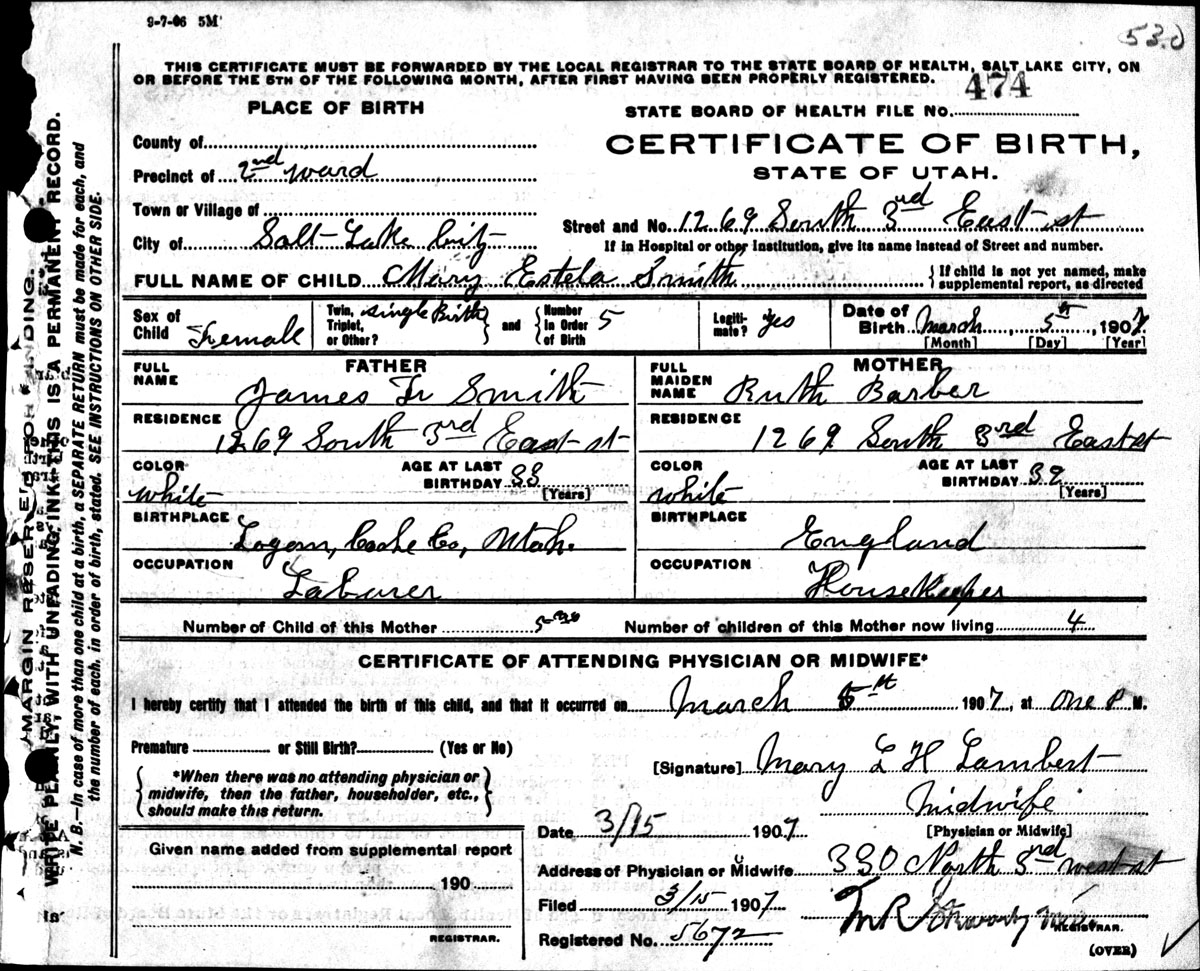 9-7-06 5M
53.0
THIS CERTIFICATE MUST BE FORWARDED BY THE LOCAL REGISTRAR TO THE STATE BOARD OF HEALTH, SALT LAKE CITY, ON
OR BEFORE THE 5TH OF THE FOLLOWING MONTH, AFTER FIRST HAVING BEEN PROPERLY REGISTERED.
PLACE OF BIRTH
STATE BOARD OF HEALTH FILE NO. 474
County of
CERTIFICATE OF BIRTH,
STATE OF UTAH.
Precinct of 2nd ward
Town or Village of
Street and No. 1269 South 3rd East st
City of Salt Lake City
If in Hospital or other Institution, give its name instead of Street and number.
FULL NAME OF CHILD Mary Estela Smith
{ If child is not yet named, make
supplemental report, as directed
Sex of Child Female
Twin, Triplet, or Other? single Birth } and { Number in Order of Birth 5
Legitimate? yes
Date of Birth March, 5th, 1907
[Month] [Day] [Year]
FATHER
FULL NAME James Smith
MOTHER
FULL MAIDEN NAME Ruth Barber
RESIDENCE 1269 South 3rd East st
RESIDENCE 1269 South 3rd East st
COLOR white
AGE AT LAST BIRTHDAY 33 [Years]
COLOR white
AGE AT LAST BIRTHDAY 32 [Years]
BIRTHPLACE Logan, Cache Co, Utah.
BIRTHPLACE England
OCCUPATION Laburer
OCCUPATION HouseKeeper
Number of Child of this Mother 5
Number of children of this Mother now living 4
CERTIFICATE OF ATTENDING PHYSICIAN OR MIDWIFE*
I hereby certify that I attended the birth of this child, and that it occurred on March 5th 1907, at one P M.
Premature or Still Birth? (Yes or No)
{ *When there was no attending physician or
midwife, then the father, householder, etc.,
should make this return. }
[Signature] Mary L H Lambert
Midwife
[Physician or Midwife]
Date 3/15 1907
Given name added from supplemental report
190
REGISTRAR.
Address of Physician or Midwife 330 North 3rd west st
Filed 3/15 1907
Registered No. 5672
REGISTRAR.
(OVER)
MARGIN RESERVED FOR BINDING.
WRITE PLAINLY, WITH UNFADING INK—THIS IS A PERMANENT RECORD.
N. B.—In case of more than one child at a birth, a SEPARATE RETURN must be made for each, and
the number of each, in order of birth, stated. SEE INSTRUCTIONS ON OTHER SIDE.